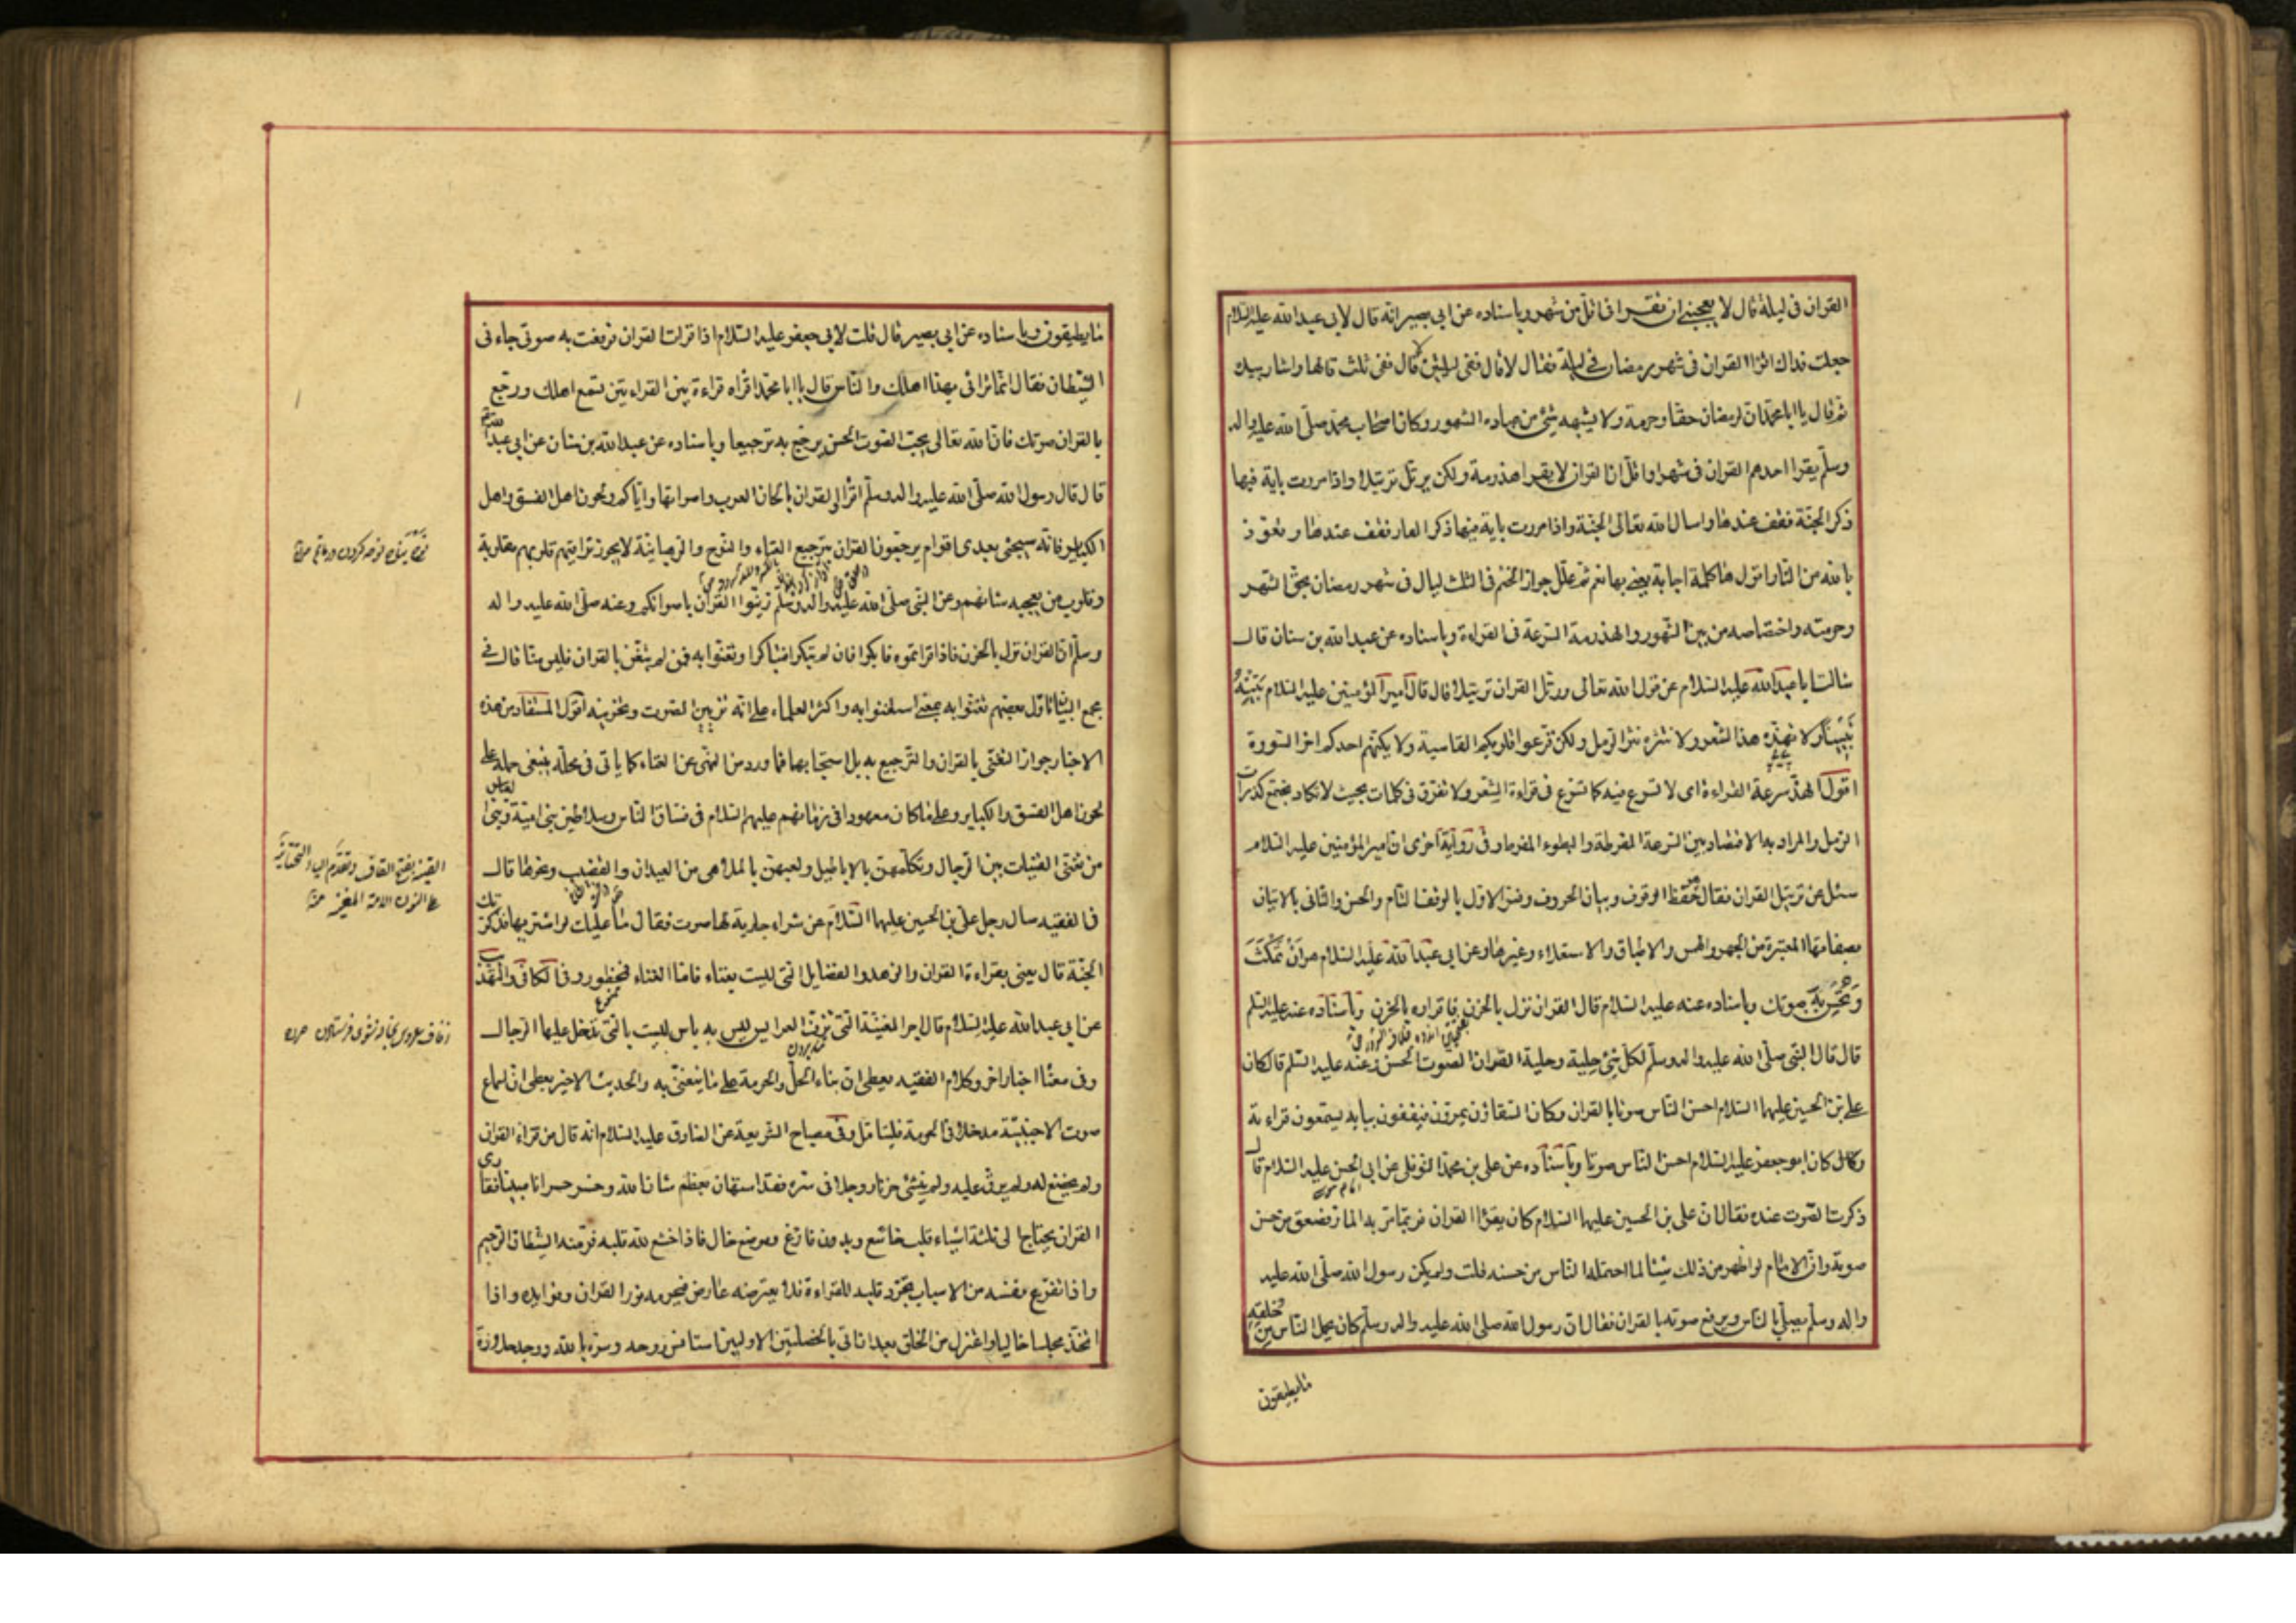 القران فى ليلة قال لا يعجبنى ان تقرا فى اقل من شهر وباسناده عن ابى بصير انه قال لابى عبدالله عليه السلام
جعلت فداك اقرا القران فى شهر رمضان فى ليلة فقال لا قال ففى ليلتين قال لا قال ففى ثلث قال ها واشار بيده
ثم قال يا ابا محمد ان لرمضان حقا وحرمة ولا يشبهه شئ من الشهور وكان اصحاب محمد صلى الله عليه واله
وسلم يقرا احدهم القران فى شهر او اقل ان القران لا يقرا هذرمة ولكن يرتل ترتيلا واذا مررت باية فيها
ذكر الجنة فقف عندها واسال الله تعالى الجنة واذا مررت باية فيها ذكر النار فقف عندها وتعوذ
بالله من النار اقول ها كلمة اجابة يعنى بها نعم ثم علل جواز الختم فى الثلث ليال فى شهر رمضان بحق الشهر
وحرمته واختصاصه من بين الشهور والهذرمة السرعة فى القراءة وباسناده عن عبدالله بن سنان قال
سالت ابا عبدالله عليه السلام عن قول الله تعالى ورتل القران ترتيلا قال قال امير المؤمنين عليه السلام بينه
تبيينا ولا تهذه هذا الشعر ولا تنثره نثر الرمل ولكن قرعوا قلوبكم القاسية ولا يكن هم احدكم اخر السورة
اقول الهذ سرعة القراءة اى لا تسرع فيه كما تسرع فى قراءة الشعر ولا تفرق فى كلمات بحيث لا تكاد تجتمع كذرات
الرمل والمراد به الاقتصاد بين السرعة المفرطة والبطوء المفرط وفى رواية اخرى ان امير المؤمنين عليه السلام
سئل عن ترتيل القران فقال حفظ الوقوف وبيان الحروف وفسر الاول بالوقف التام والحسن والثانى بالاتيان
بصفاتها المعتبرة من الجهر والهمس والاطباق والاستعلاء وغيرها وعن ابى عبدالله عليه السلام هو ان تمكث
وتحسن به صوتك وباسناده عنه عليه السلام قال القران نزل بالحزن فاقراوه بالحزن وباسناده عنه عليه السلم
قال قال النبى صلى الله عليه واله وسلم لكل شئ حلية وحلية القران الصوت الحسن وعنه عليه السلم قال كان
على بن الحسين عليهما السلام احسن الناس صوتا بالقران وكان السقاؤن يمرون فيقفون ببابه يستمعون قراءته
وكان ابو جعفر عليه السلام احسن الناس صوتا وباسناده عن على بن محمد النوفلى عن ابى الحسن عليه السلام قال
ذكرت الصوت عنده فقال ان على بن الحسين عليهما السلام كان يقرا القران فربما مر به المار فصعق من حسن
صوته وان الامام لو اظهر من ذلك شيئا لما احتمله الناس من حسنه قلت ولم يكن رسول الله صلى الله عليه
واله وسلم يصلى بالناس ويرفع صوته بالقران فقال ان رسول الله صلى الله عليه واله وسلم كان يحمل الناس من خلفه
ما يطيقون
ما يطيقون وباسناده عن ابى بصير قال قلت لابى جعفر عليه السلام اذا قرات القران فرفعت به صوتى جاءنى
الشيطان فقال انما ترائى بهذا اهلك والناس قال يا ابا محمد اقراه قراءة بين القراءتين تسمع اهلك ورجع
بالقران صوتك فان الله تعالى يحب الصوت الحسن يرجع به ترجيعا وباسناده عن عبدالله بن سنان عن ابى عبدالله
قال قال رسول الله صلى الله عليه واله وسلم اقراوا القران بالحان العرب واصواتها واياكم ولحون اهل الفسق واهل
الكباير فانه سيجئ بعدى اقوام يرجعون القران ترجيع الغناء والنوح والرهبانية لا يجوز تراقيهم قلوبهم مقلوبة
وقلوب من يعجبه شانهم وعن النبى صلى الله عليه واله وسلم زينوا القران باصواتكم وعنه صلى الله عليه واله
وسلم ان القران نزل بالحزن فاذا قراتموه فابكوا فان لم تبكوا فتباكوا وتغنوا به فمن لم يتغن بالقران فليس منا قال فى
مجمع البيان تاول بعضهم تغنوا به بمعنى استغنوا به واكثر العلماء على انه تزيين الصوت وتحزينه اقول المستفاد من هذه
الاخبار جواز التغنى بالقران والترجيع به بل استحبابهما فما ورد من النهى عن الغناء كما ياتى فى محله ينبغى حمله على
لحون اهل الفسق والكباير وعلى ما كان معهودا فى زمانهم عليهم السلام فى فساق الناس وسلاطين بنى امية وبنى العباس
من تغنى القينات بين الرجال وتكلمهن بالاباطيل ولعبهن بالملاهى من العيدان والقضيب ونحوها قال
فى الفقيه سال رجل على بن الحسين عليهما السلام عن شراء جارية لها صوت فقال ما عليك لو اشتريتها فذكرتك
الجنة قال يعنى بقراءة القران والزهد والفضايل التى ليست بغناء فاما الغناء فمحظور وفى الكافى والتهذيب
عن ابى عبدالله عليه السلام قال اجر المغنية التى تزف العرايس ليس به باس ليست بالتى تدخل عليها الرجال
وفى معناه اخبار اخر وكلام الفقيه يعطى ان بناء الحل والحرمة على ما يتغنى به والحديث الاخير يعطى ان لسماع
صوت الاجنبية مدخلا فى الحرمة فليتامل وفى مصباح الشريعة عن الصادق عليه السلام انه قال من قراء القران
ولم يخضع له ولم يرق عليه ولم ينشئ حزنا ووجلا فى سره فقد استهان بعظم شان الله وخسر خسرانا مبينا فقارى
القران يحتاج الى ثلثة اشياء قلب خاشع وبدن فارغ وموضع خال فاذا خشع لله قلبه فر منه الشيطان الرجيم
واذا تفرغ نفسه من الاسباب تجرد قلبه للقراءة فلا يعترضه عارض فيحرمه نور القران وفوايده واذا
اتخذ مجلسا خاليا واعتزل من الخلق بعد ان اتى بالخصلتين الاوليين استانس روحه وسره بالله ووجد حلاوة
القينة بفتح القاف وتقدم الياء التحتانية
على النون الامة المغنية منه